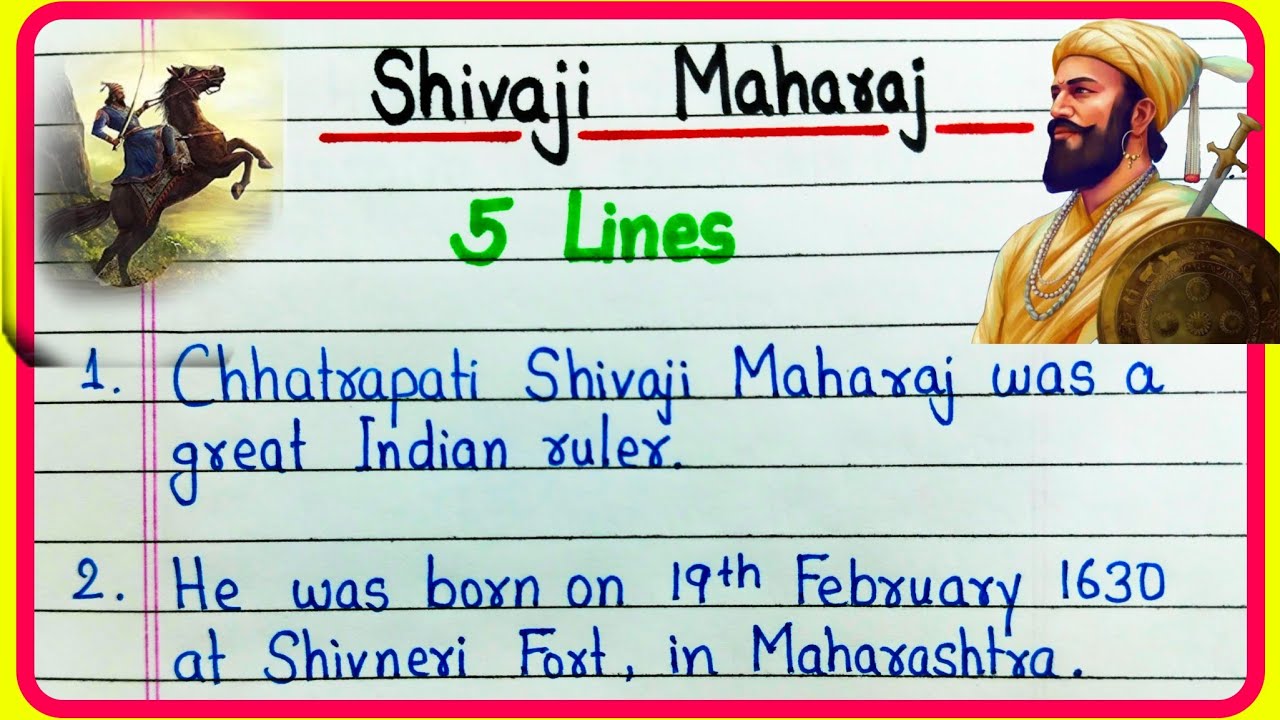 Shivaji Maharaj
5 Lines
1. Chhatrapati Shivaji Maharaj was a
great Indian ruler.
2. He was born on 19th February 1630
at Shivneri Fort, in Maharashtra.